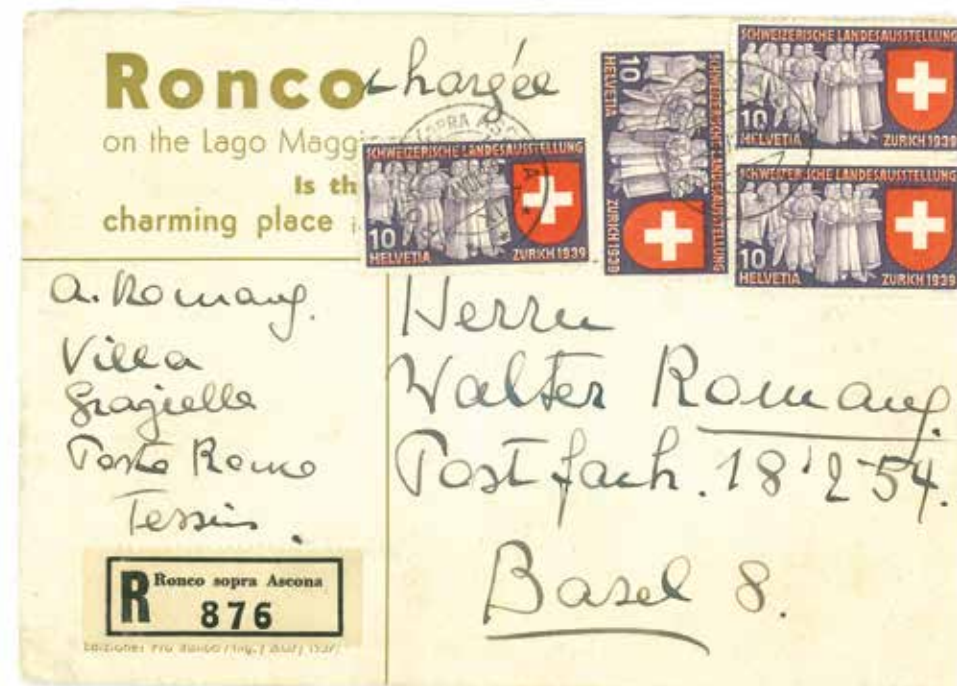 Ronco
chargée
on the Lago Magg
Is th
charming place
SCHWEIZERISCHE LANDESAUSSTELLUNG
10
HELVETIA ZURICH 1939
SCHWEIZERISCHE LANDESAUSSTELLUNG
10
HELVETIA ZURICH 1939
SCHWEIZERISCHE LANDESAUSSTELLUNG
10
HELVETIA ZURICH 1939
SCHWEIZERISCHE LANDESAUSSTELLUNG
10
HELVETIA ZURICH 1939
A. Romang.
Villa
Graziella
Porto Ronco
Tessin.
Herrn
Walter Romang.
Postfach. 18'254.
Basel 8.
R Ronco sopra Ascona
876